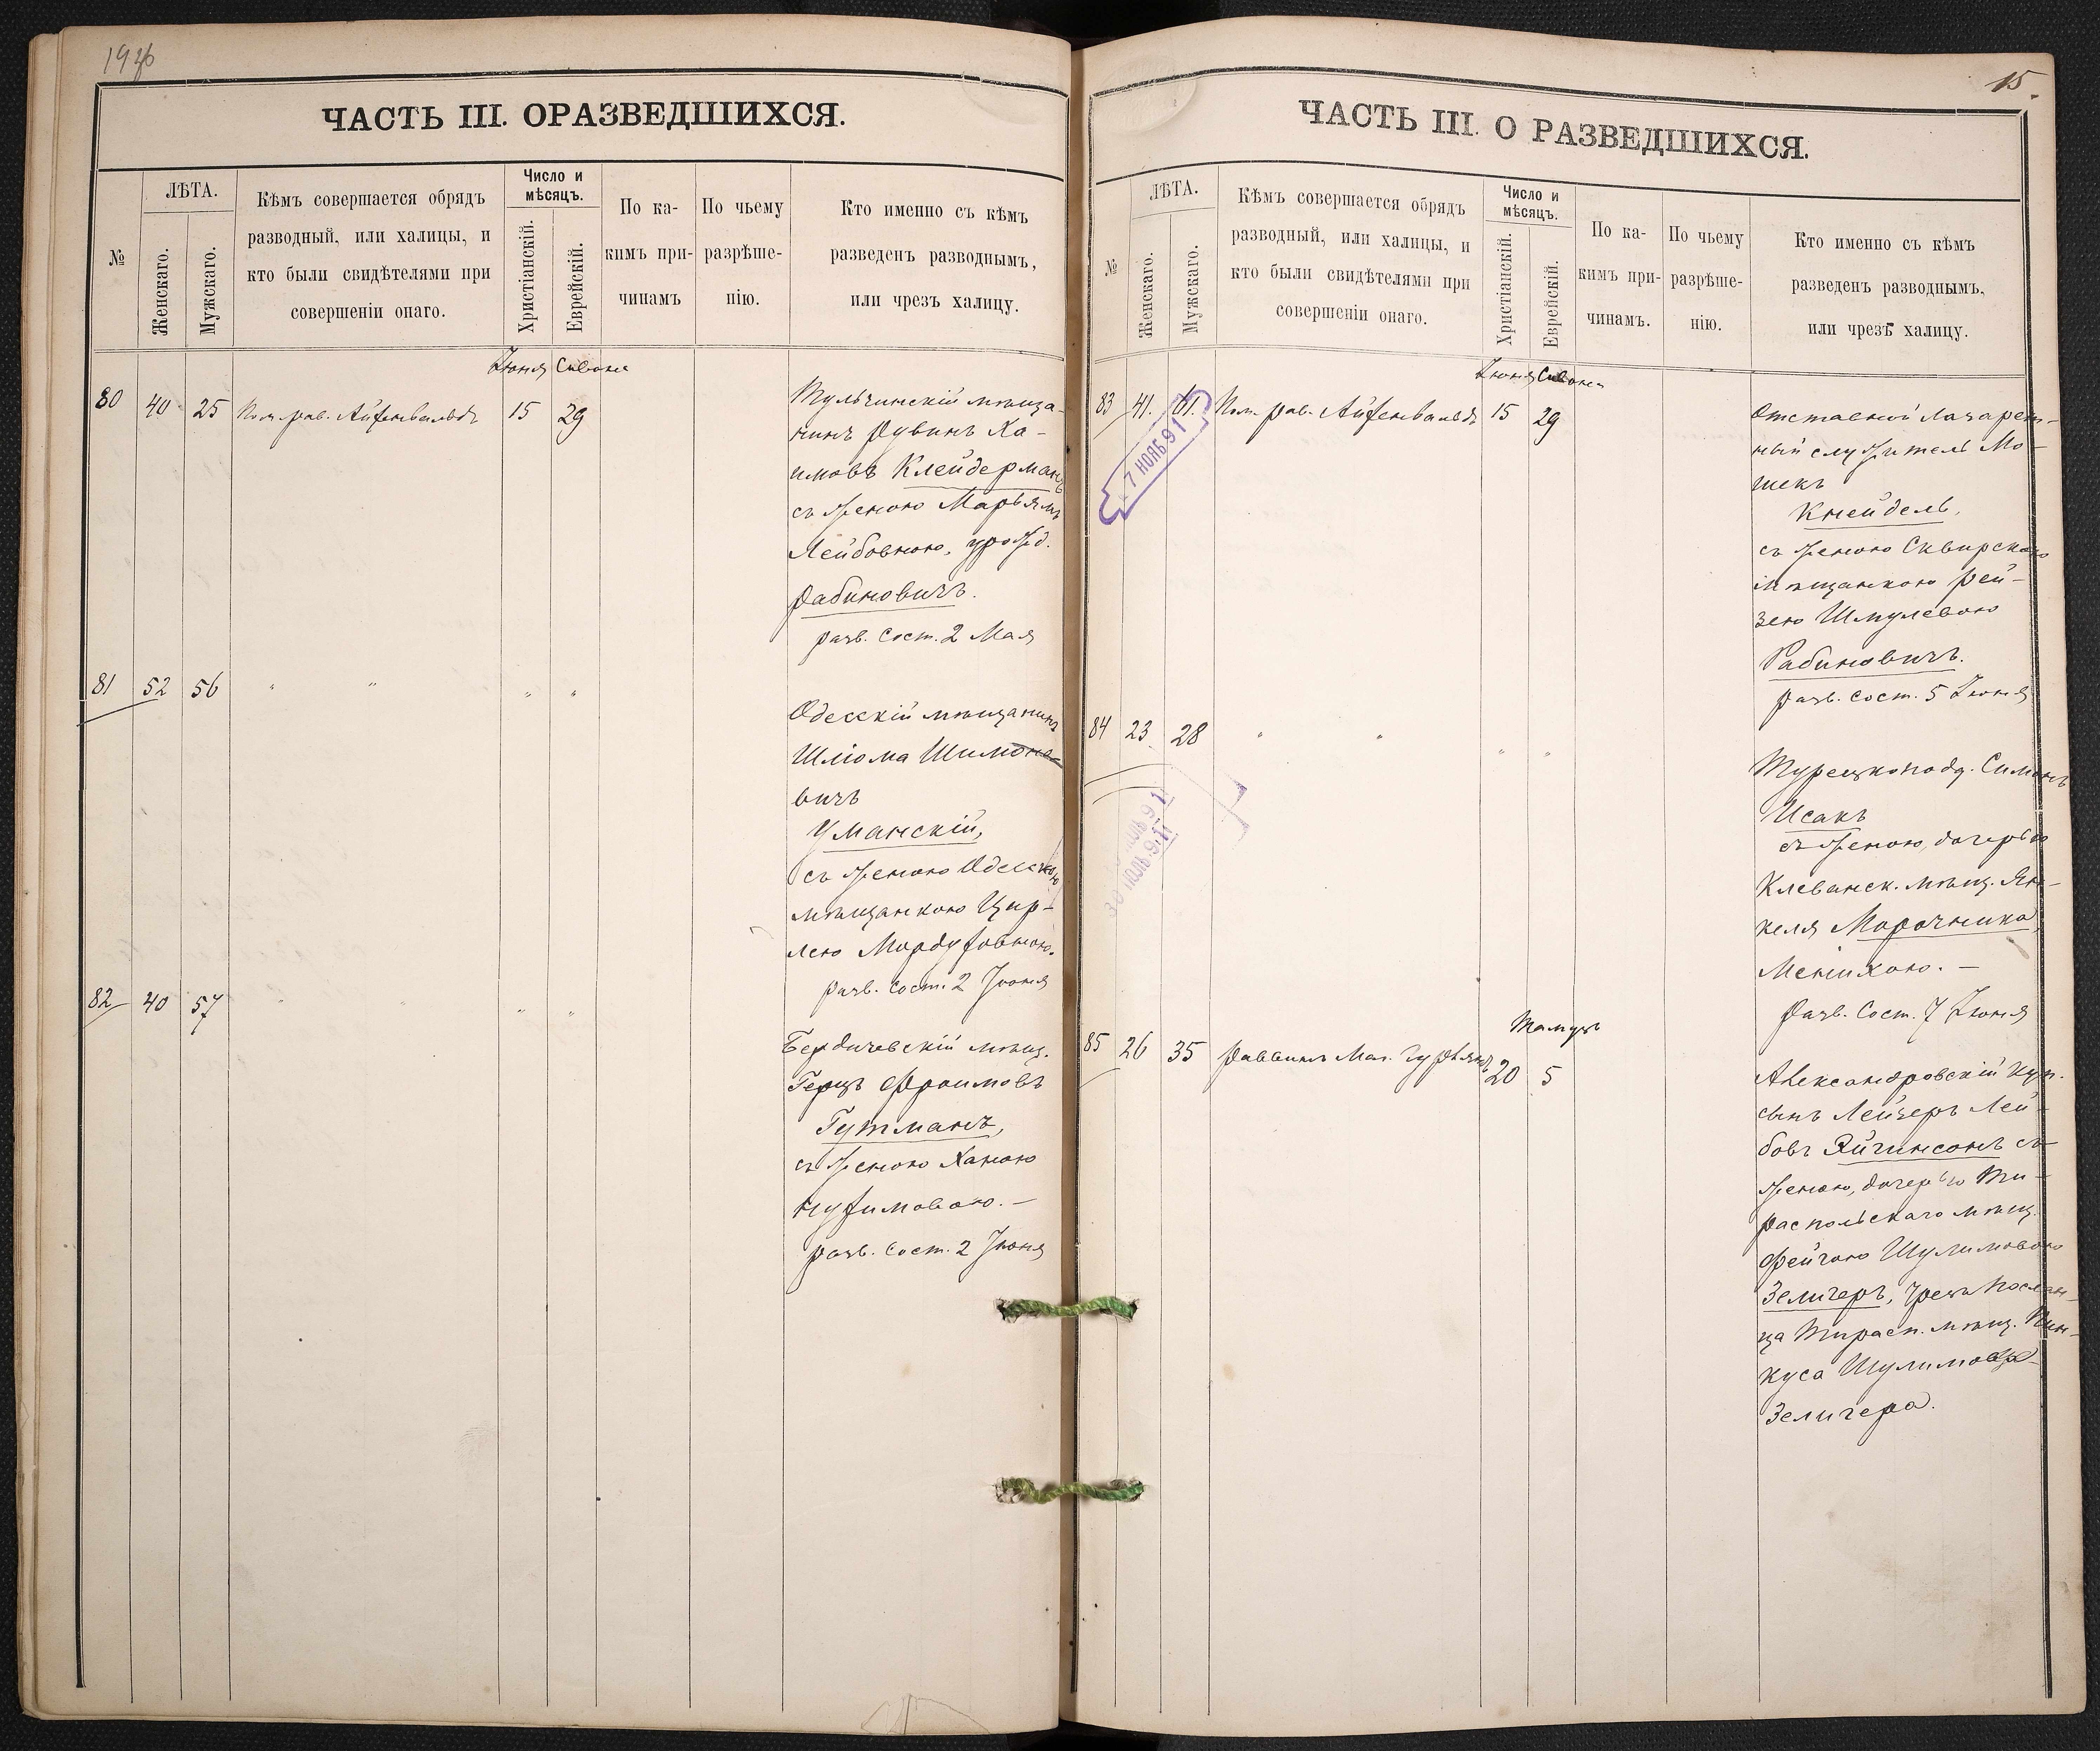 1926
ЧАСТЬ III. ОРАЗВЕДШИХСЯ.
№
ЛѢТА.
Женскаго.
Мужскаго.
Кѣмъ совершается обрядъ
разводный, или халицы, и
кто были свидѣтелями при
совершеніи онаго.
Число и
мѣсяцъ.
Христіанскій.
Еврейскій.
По ка-
кимъ при-
чинамъ
По чьему
разрѣше-
нію.
Кто именно съ кѣмъ
разведенъ разводнымъ,
или чрезъ халицу.
Іюня Сивона
80 40 25 Пом. рав. Айзенвальдъ 15 29
Тульчинскій мѣща-
нинъ Рувинъ Ха-
имовъ Клейдерманъ
съ женою Марьямъ
Лейбовною, урожд.
Рабиновичъ.
разв. сост. 2 Мая
81 52 56 " " " "
Одесскій мѣщанинъ
Шліома Шимоно-
вичъ
Уманскій,
съ женою Одесскою
мѣщанкою Цир-
лею Мордуховною.
разв. сост. 2 Іюня
82 40 57 " " " "
Бердичевскій мѣщ.
Герцъ Фроимовъ
Гутманъ,
съ женою Ханою
Нухимовою. —
разв. сост. 2 Іюня
15.
ЧАСТЬ III. О РАЗВЕДШИХСЯ.
№
ЛѢТА.
Женскаго.
Мужскаго.
Кѣмъ совершается обрядъ
разводный, или халицы, и
кто были свидѣтелями при
совершеніи онаго.
Число и
мѣсяцъ.
Христіанскій.
Еврейскій.
По ка-
кимъ при-
чинамъ.
По чьему
разрѣше-
нію.
Кто именно съ кѣмъ
разведенъ разводнымъ,
или чрезъ халицу.
Іюня Сивона
83 41. 61. Пом. рав. Айзенвальдъ 15 29
7 НОЯБ 91
Отставной лазарет-
ный служитель Мо-
шекъ
Кнейдель,
съ женою Сквирскою
мѣщанкою Рей-
зею Шмулевою
Рабиновичъ.
разв. сост. 5 Іюня
84 23 28 " " " "
30 НОЯБ 91
Турецкоподд. Симонъ
Исакъ
съ женою, дочерью
Клеванск. мѣщ. Ян-
келя Морочника
Менихою. —
Разв. Сост. 7 Іюня
Тамузъ
85 26 35 Раввинъ Мог. Гурѣянъ 20 5
Александровскій куп.
сынъ Лейзеръ Лей-
бовъ Эйчинсонъ съ
женою, дочерью Ти-
распольскаго мѣщ.
Фейгою Шулимовою
Зеличеръ, чрезъ послан-
ца Тирасп. мѣщ. Пин-
куса Шулимова
Зеличера.